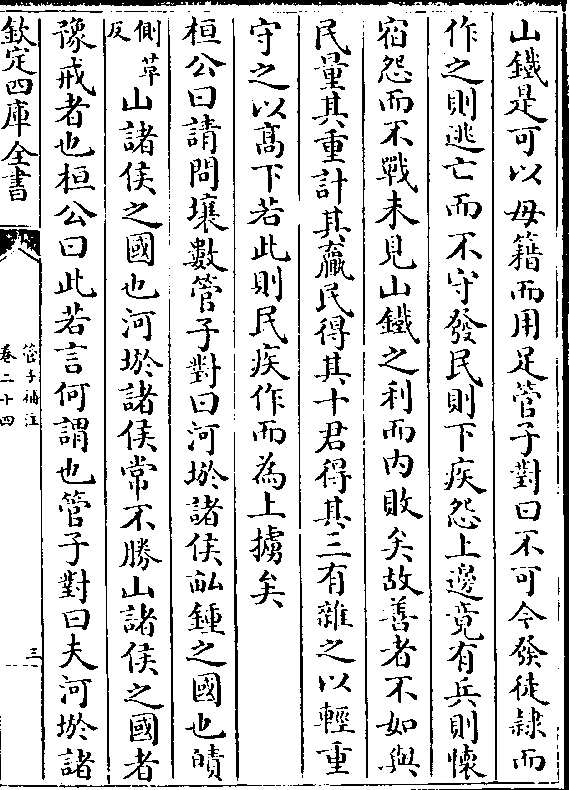 山鐵是可以毋籍而用足管子對曰不可今發徒隸而
作之則逃亡而不守發民則下疾怨上邊竟有兵則懷
宿怨而不戰未見山鐵之利而內敗矣故善者不如與
民量其重計其贏民得其十君得其三有雜之以輕重
守之以高下若此則民疾作而為上擄矣
桓公曰請問壤數管子對曰河㳀諸侯畝鍾之國也𧷤
側草反山諸侯之國也河㳀諸侯常不勝山諸侯之國者
豫戒者也桓公曰此若言何謂也管子對曰夫河㳀諸
欽定四庫全書
管子補注
卷二十四
三